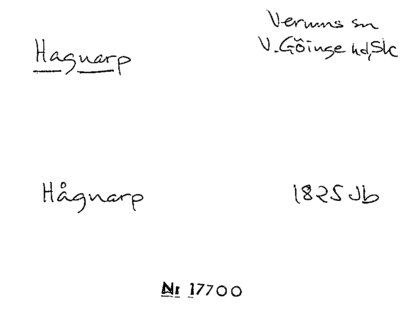 Hagnarp
Verums sn
V. Göinge hd, Sk
Hågnarp
1825 Jb
Nr 17700